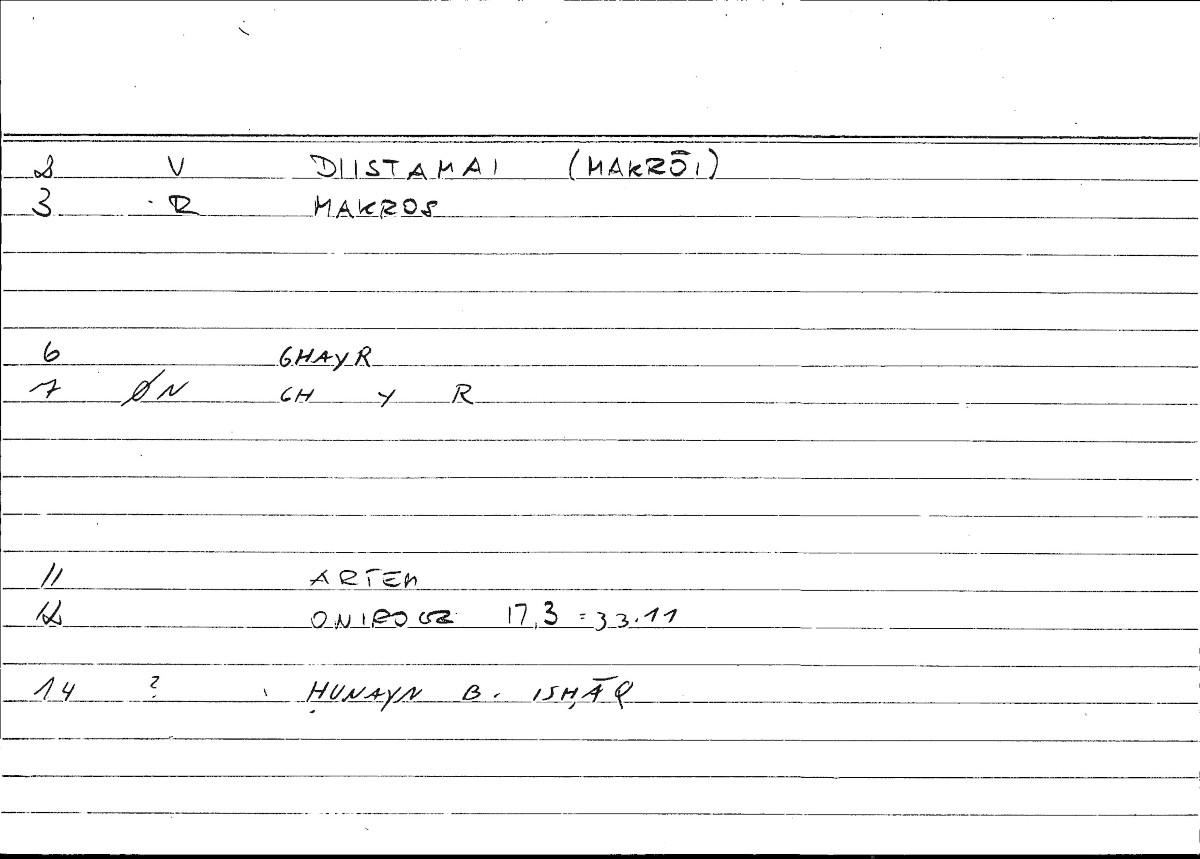 2 V DIISTAMAI (MAKRŌI)
3 R MAKROS
6 GHAYR
7 ØN GH Y R
11 ARTEM
12 ONIROCR 17,3 = 33.11
14 ? ḤUNAYN B. ISḤĀQ